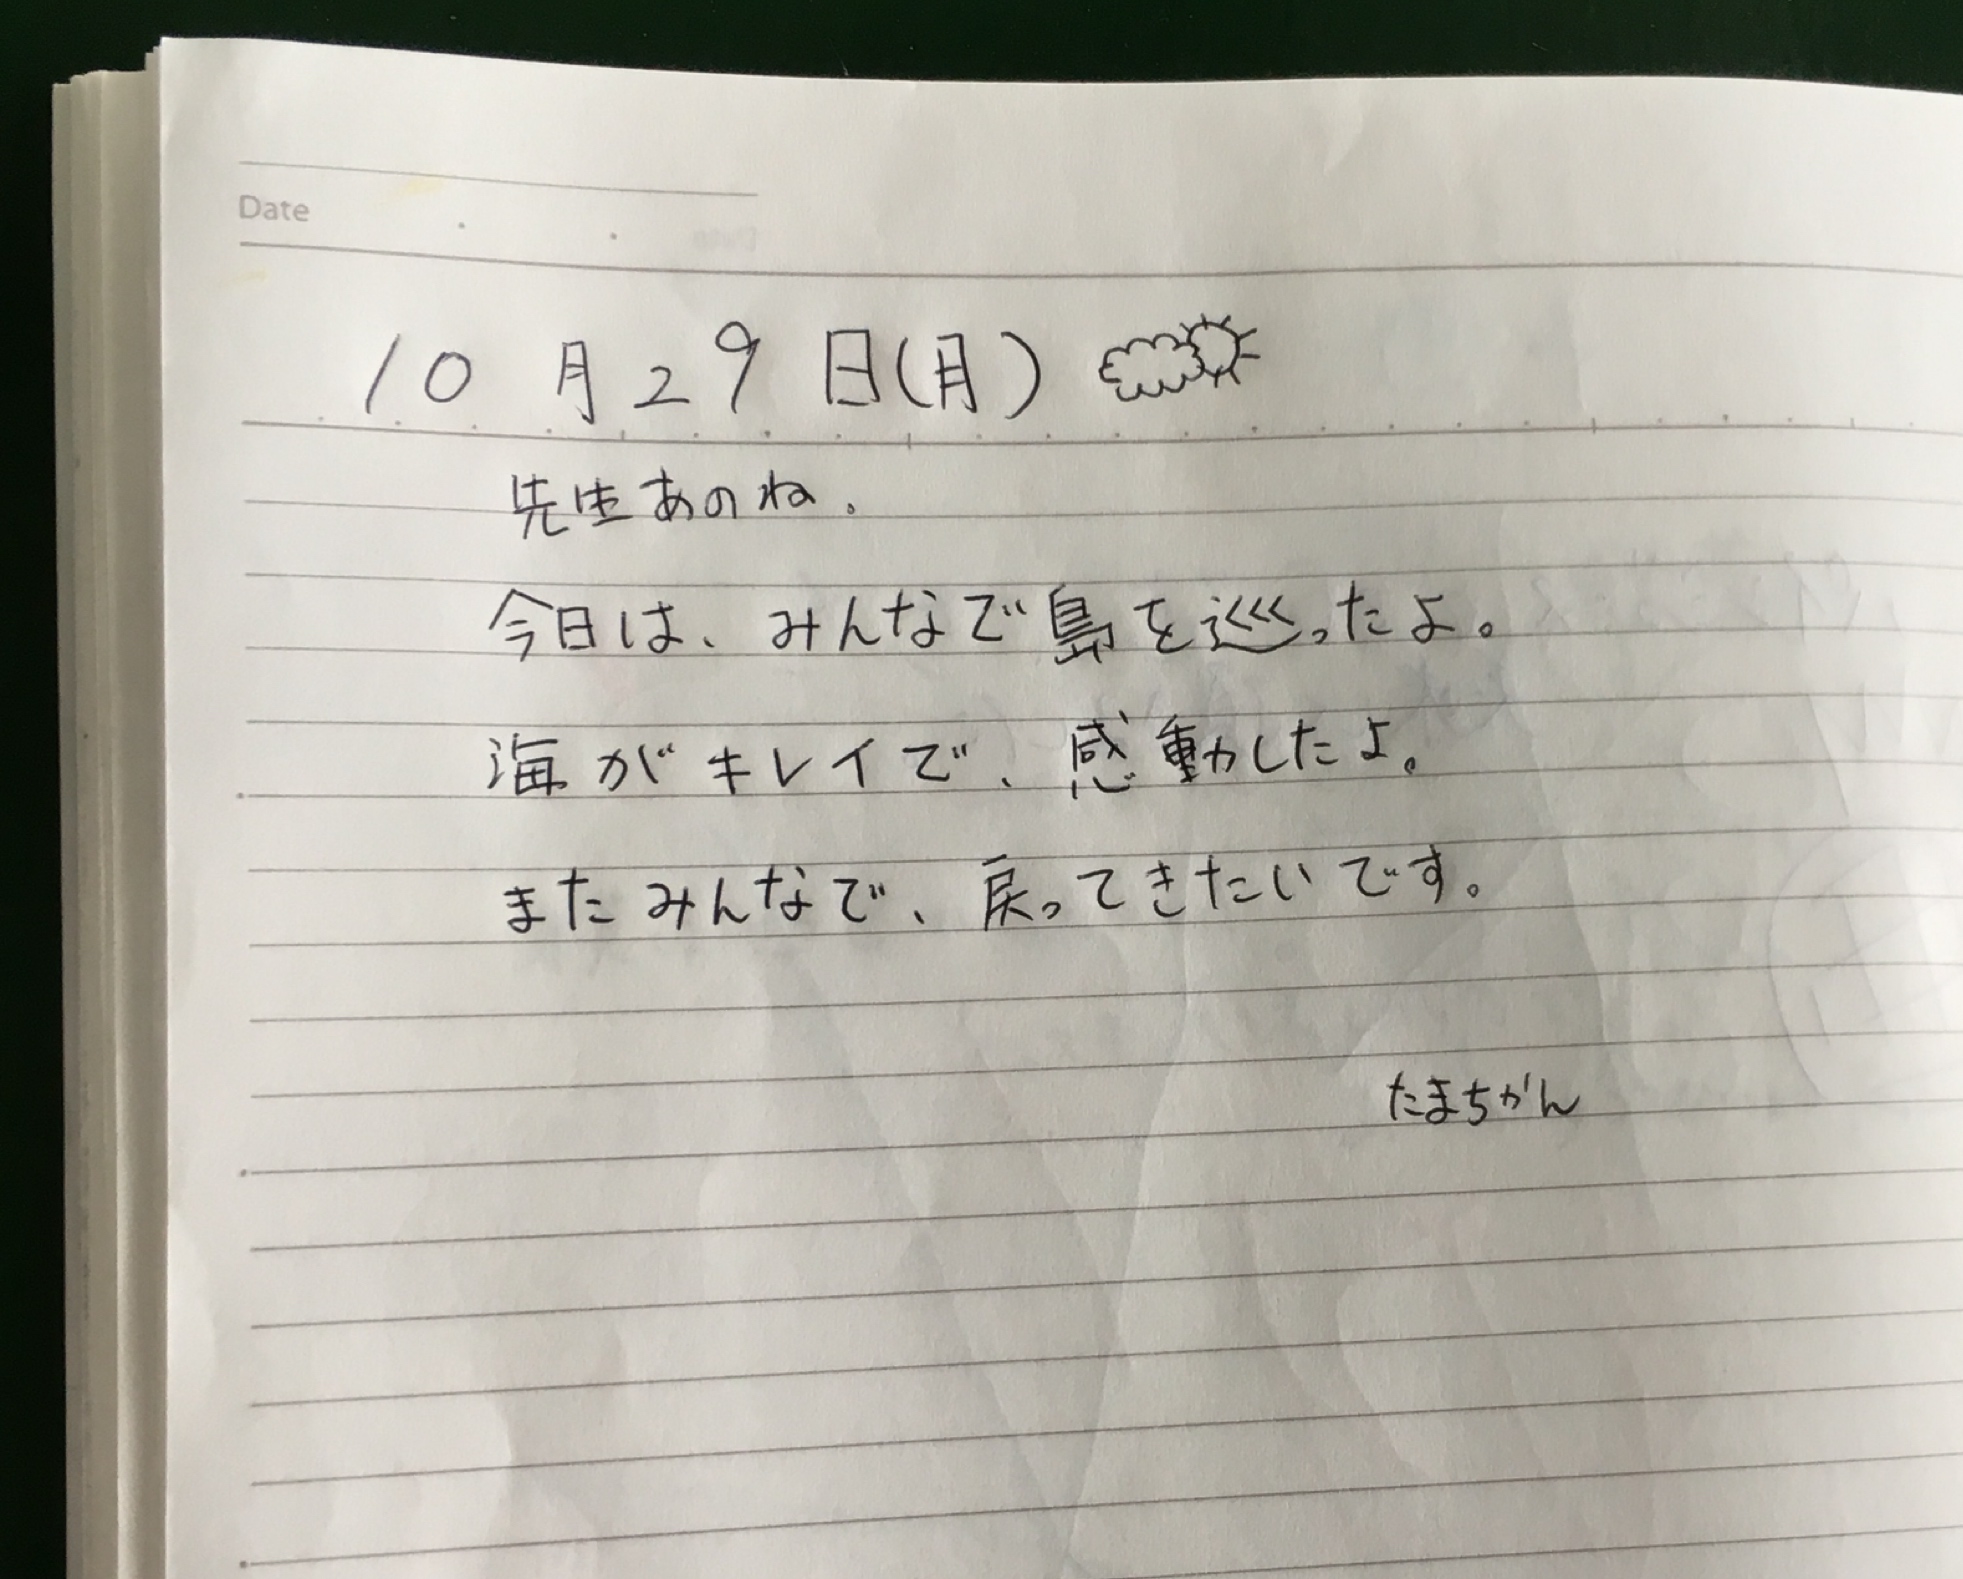 Date
10月29日(月)
先生あのね。
今日は、みんなで島を巡ったよ。
海がキレイで、感動したよ。
またみんなで、戻ってきたいです。
たまちかん